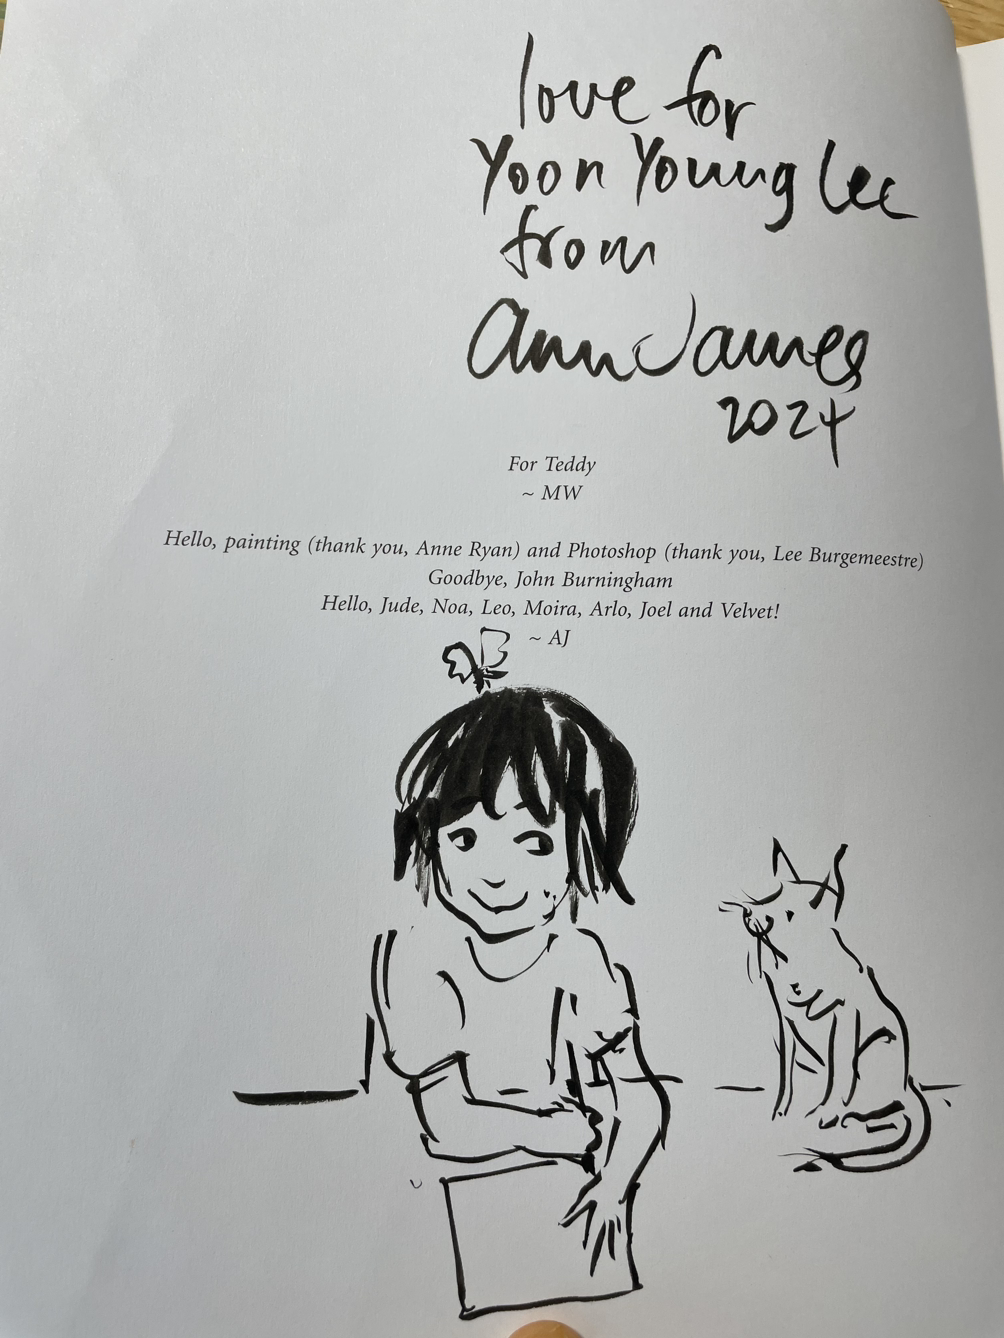 love for
Yoon Young Lee
from
Ann James
2024
For Teddy
~ MW
Hello, painting (thank you, Anne Ryan) and Photoshop (thank you, Lee Burgemeestre)
Goodbye, John Burningham
Hello, Jude, Noa, Leo, Moira, Arlo, Joel and Velvet!
~ AJ